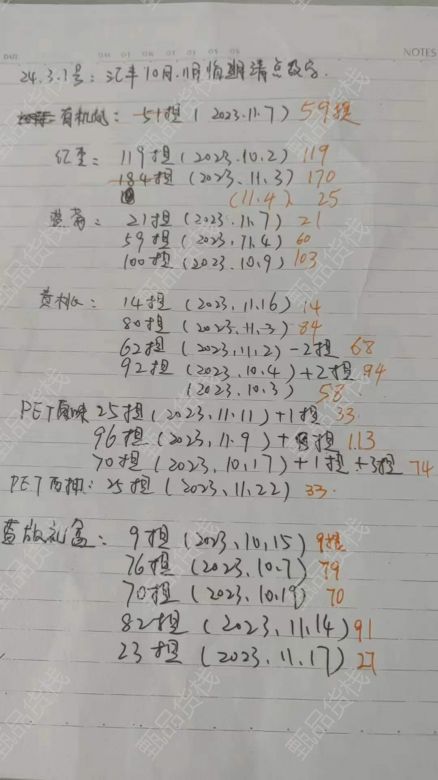 NOTES
24.3.1号：汇丰10月.11月临期清点数字.
有机奶：51担（2023.11.7）59担
红枣：119担（2023.10.2）119
184担（2023.11.3）170
（11.4）25
蓝莓：21担（2023.11.7）21
59担（2023.11.4）60
100担（2023.10.9）103
黄桃：14担（2023.11.16）14
80担（2023.11.3）84
62担（2023.11.2）-2担 68
92担（2023.10.4）+2担 94
（2023.10.3）58
PET原味25担（2023.11.11）+1担 33
96担（2023.11.9）+担 113
70担（2023.10.17）+1担+3担 74
PET西柚：25担（2023.11.22）33.
蓝版礼盒：9担（2023.10.15）9担
76担（2023.10.7）79
70担（2023.10.19）70
82担（2023.11.14）91
23担（2023.11.17）27
甄品货栈